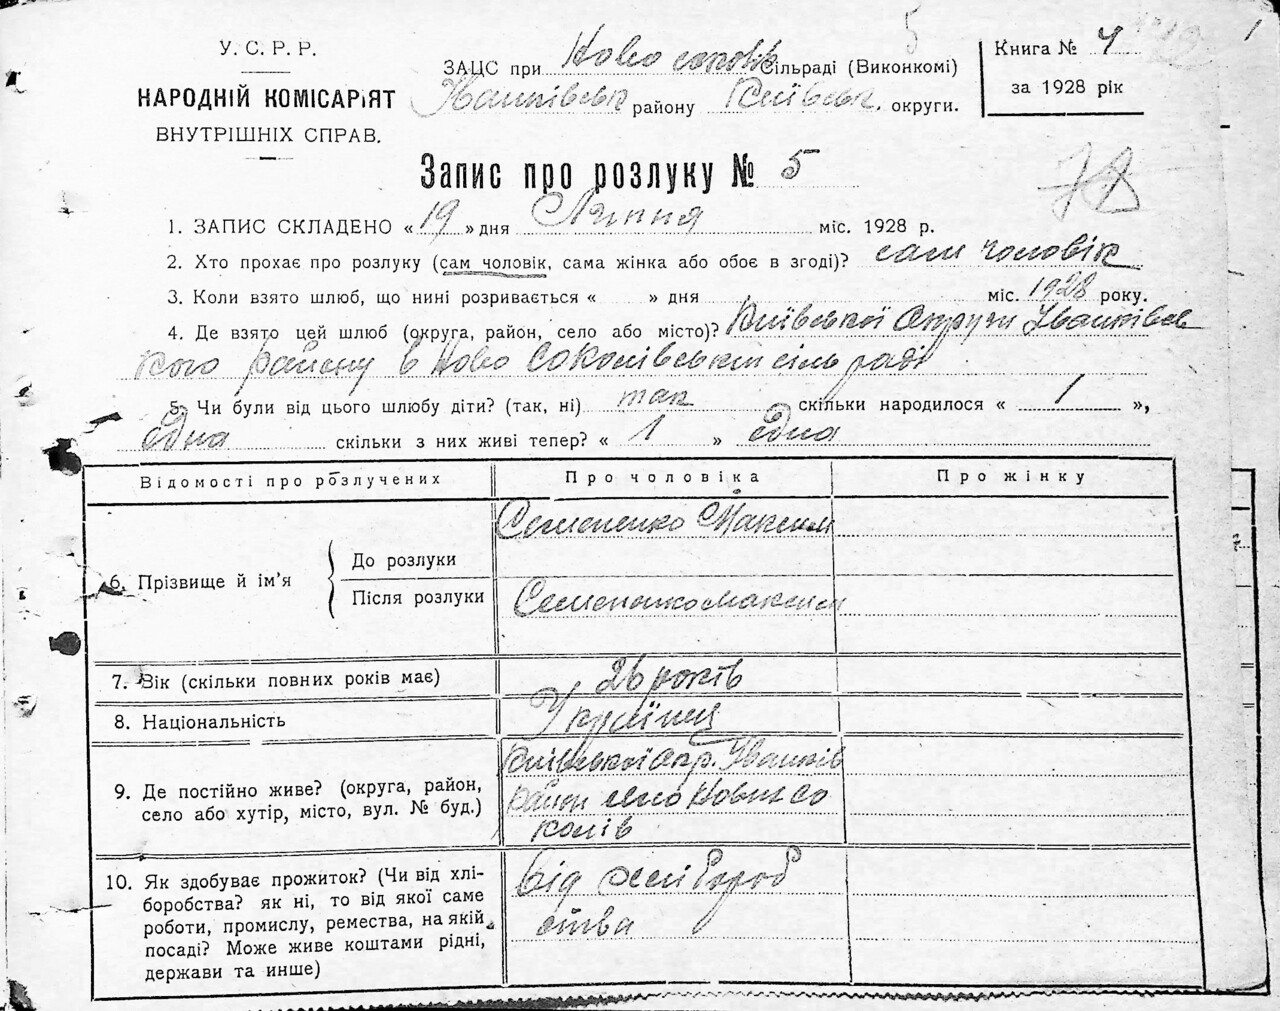 У. С. Р. Р.
НАРОДНІЙ КОМІСАРІЯТ
ВНУТРІШНІХ СПРАВ.
5
ЗАЦС при Ново соковів Сільраді (Виконкомі)
Іванківськ району Київськ. округи.
Книга № 4
за 1928 рік
1
Запис про розлуку № 5
78
1. ЗАПИС СКЛАДЕНО « 19 » дня Липня міс. 1928 р.
2. Хто прохає про розлуку (сам чоловік, сама жінка або обоє в згоді)? сам чоловік
3. Коли взято шлюб, що нині розривається « » дня міс. 1928 року.
4. Де взято цей шлюб (округа, район, село або місто)? Київської Округи Іванківсь
кого району в Ново Соколівський сіль раді
5. Чи були від цього шлюбу діти? (так, ні) так скільки народилося « 1 »,
єдна скільки з них живі тепер? « 1 » єдна
Відомості про розлучених Про чоловіка Про жінку
Семененко Максим
6. Прізвище й ім'я До розлуки
Після розлуки Семененко Максим
7. Вік (скільки повних років має) 26 років
8. Національність Українец
9. Де постійно живе? (округа, район, село або хутір, місто, вул. № буд.) Київської окр. Іванків
район село Нових Со
колів
10. Як здобуває прожиток? (Чи від хлі-
боробства? як ні, то від якої саме
роботи, промислу, ремества, на якій
посаді? Може живе коштами рідні,
держави та инше)
від хлібороб
ства